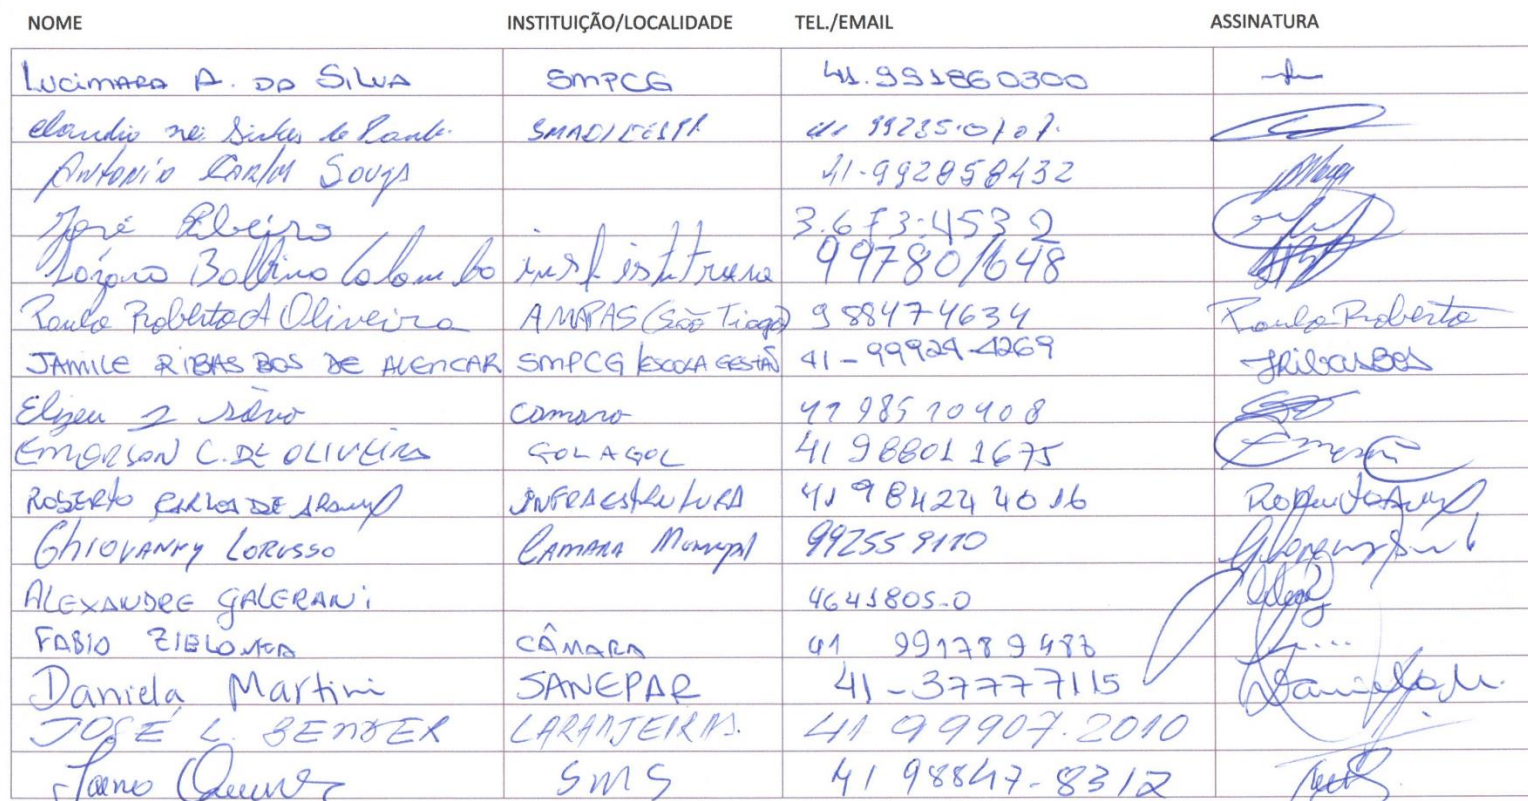 NOME INSTITUIÇÃO/LOCALIDADE TEL./EMAIL ASSINATURA
LUCIMARA A. DA SILVA SMPCG 41.991860300
Claudio nei de 41 99235.0101.
ANTONIO CARLOS SOUZA 41-992858432
José Ribeiro 3.673-4532
Balbino Colombo inst 997801648
Paulo Roberto A Oliveira AMAPAS (São Tiago) 988474634 Paulo Roberto
JAMILE RIBAS BOS DE ALENCAR SMPCG/ESCOLA GESTÃO 41-99924-4269 JRibasBos
Elizeu camara 41 98510408
EMERSON C. DE OLIVEIRA GOLAGOL 41 98801 1675 Emerson
ROBERTO CARLOS DE ARAUJO INFRAESTRUTURA 41 98424 4016 Roberto
GHIOVANNY LORUSSO CAMARA Municipal 992559110
ALEXANDRE GALERANI 4641805-0
FABIO ZIELONKA CÂMARA 41 991789486
Daniela Martini SANEPAR 41-37777115 Daniela
JOSÉ L. BENDER LARANJEIRAS. 41 99907.2010
SMS 41 98847-8312